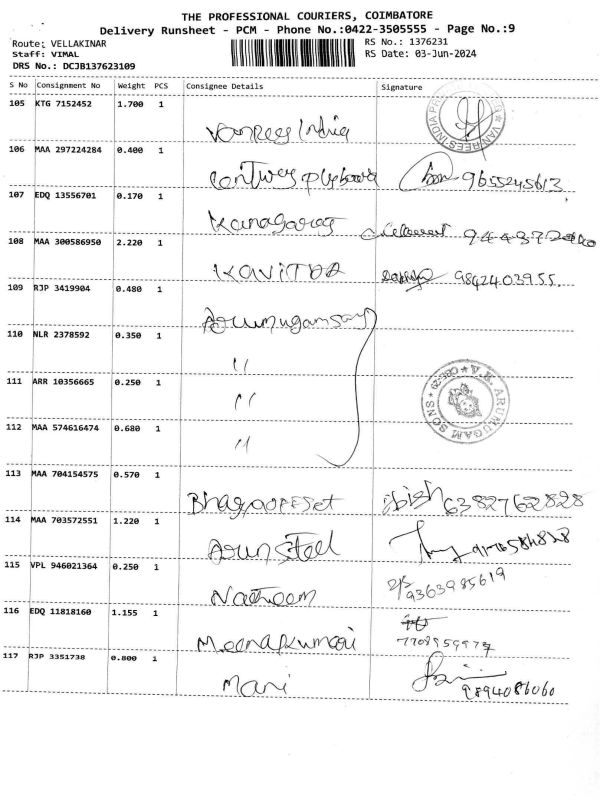 THE PROFESSIONAL COURIERS, COIMBATORE
Delivery Runsheet - PCM - Phone No.:0422-3505555 - Page No.:9
Route: VELLAKINAR
RS No.: 1376231
Staff: VIMAL
RS Date: 03-Jun-2024
DRS No.: DCJB137623109
S No Consignment No Weight PCS Consignee Details Signature
105 KTG 7152452 1.700 1
VanRees India
VAN REES INDIA
106 MAA 297224284 0.400 1
9655245613
107 EDQ 13556701 0.170 1
Kanagaraj
108 MAA 300586950 2.220 1
KAVITHA 9842403955.
109 RJP 3419904 0.480 1
Arumugamsons
110 NLR 2378592 0.350 1
"
111 ARR 10356665 0.250 1
"
V.K. ARUMUGAM SONS
112 MAA 574616474 0.680 1
"
113 MAA 704154575 0.570 1
6382762828
114 MAA 703572551 1.220 1
Arun Steel
115 VPL 946021364 0.250 1
9363985619
116 EDQ 11818160 1.155 1
Meenakumari
117 RJP 3351738 0.800 1
Mani 9894086060